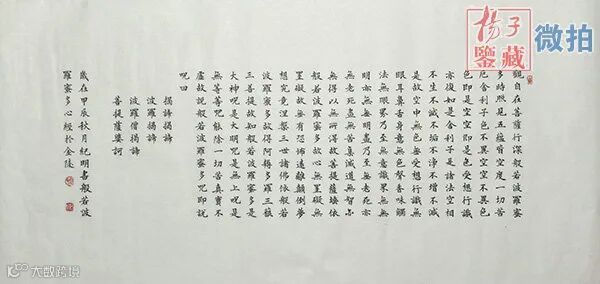 楊子
鑒藏
微拍
觀自在菩薩行深般若波羅蜜
多時照見五蘊皆空度一切苦
厄舍利子色不異空空不異色
色即是空空即是色受想行識
亦復如是舍利子是諸法空相
不生不滅不垢不淨不增不減
是故空中無色無受想行識無
眼耳鼻舌身意無色聲香味觸
法無眼界乃至無意識界無無
明亦無無明盡乃至無老死亦
無老死盡無苦集滅道無智亦
無得以無所得故菩提薩埵依
般若波羅蜜多故心無罣礙無
罣礙故無有恐怖遠離顛倒夢
想究竟涅槃三世諸佛依般若
波羅蜜多故得阿耨多羅三藐
三菩提故知般若波羅蜜多是
大神呪是大明呪是無上呪是
無等等呪能除一切苦真實不
虛故說般若波羅蜜多呪即說
呪曰
揭諦揭諦
波羅揭諦
波羅僧揭諦
菩提薩婆訶
歲在甲辰秋月紀明書般若波
羅蜜多心經於金陵
大数跨境